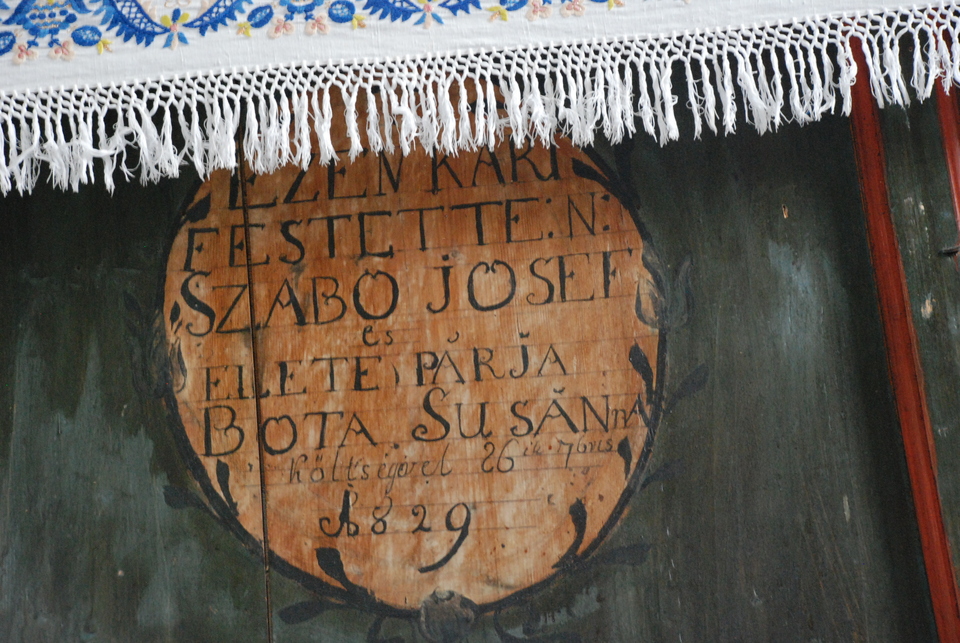 EZEN KARI
FESTETTE: N:
SZABO JOSEF
és
ELETE PÁRJA
BOTA SUSĂNna
költségével 26ik 7bris
A 1829